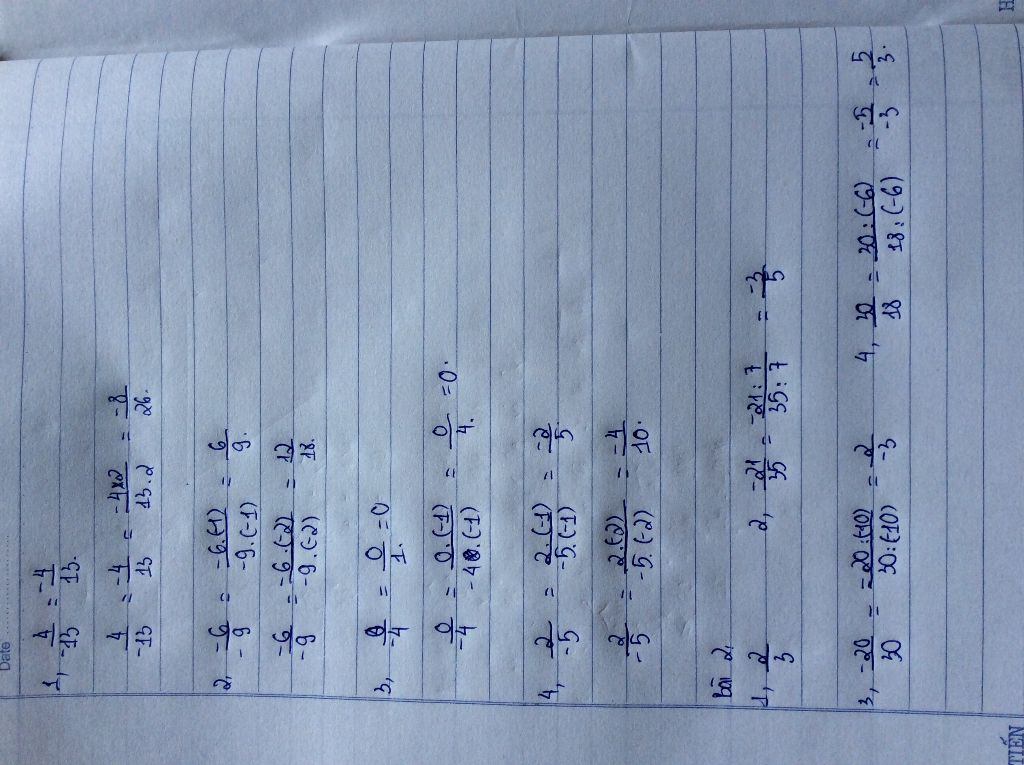 Date
1, 4/-13 = -4/13.
4/-13 = -4/13 = -4x2/13.2 = -8/26.
2, -6/-9 = -6.(-1)/-9.(-1) = 6/9.
-6/-9 = -6.(-2)/-9.(-2) = 12/18.
3, 0/-4 = 0/1. = 0
0/-4 = 0.(-1)/-4.(-1) = 0/4. = 0.
4, 2/-5 = 2.(-1)/-5.(-1) = -2/5
2/-5 = 2.(-2)/-5.(-2) = -4/10.
Bài 2
1, 2/3 2, -21/35 = -21:7/35:7 = -3/5
3, -20/30 = -20:(10)/30:(-10) = 2/-3 4, 30/18 = 30:(-6)/18:(-6) = -5/-3 = 5/3.
TIẾN
H